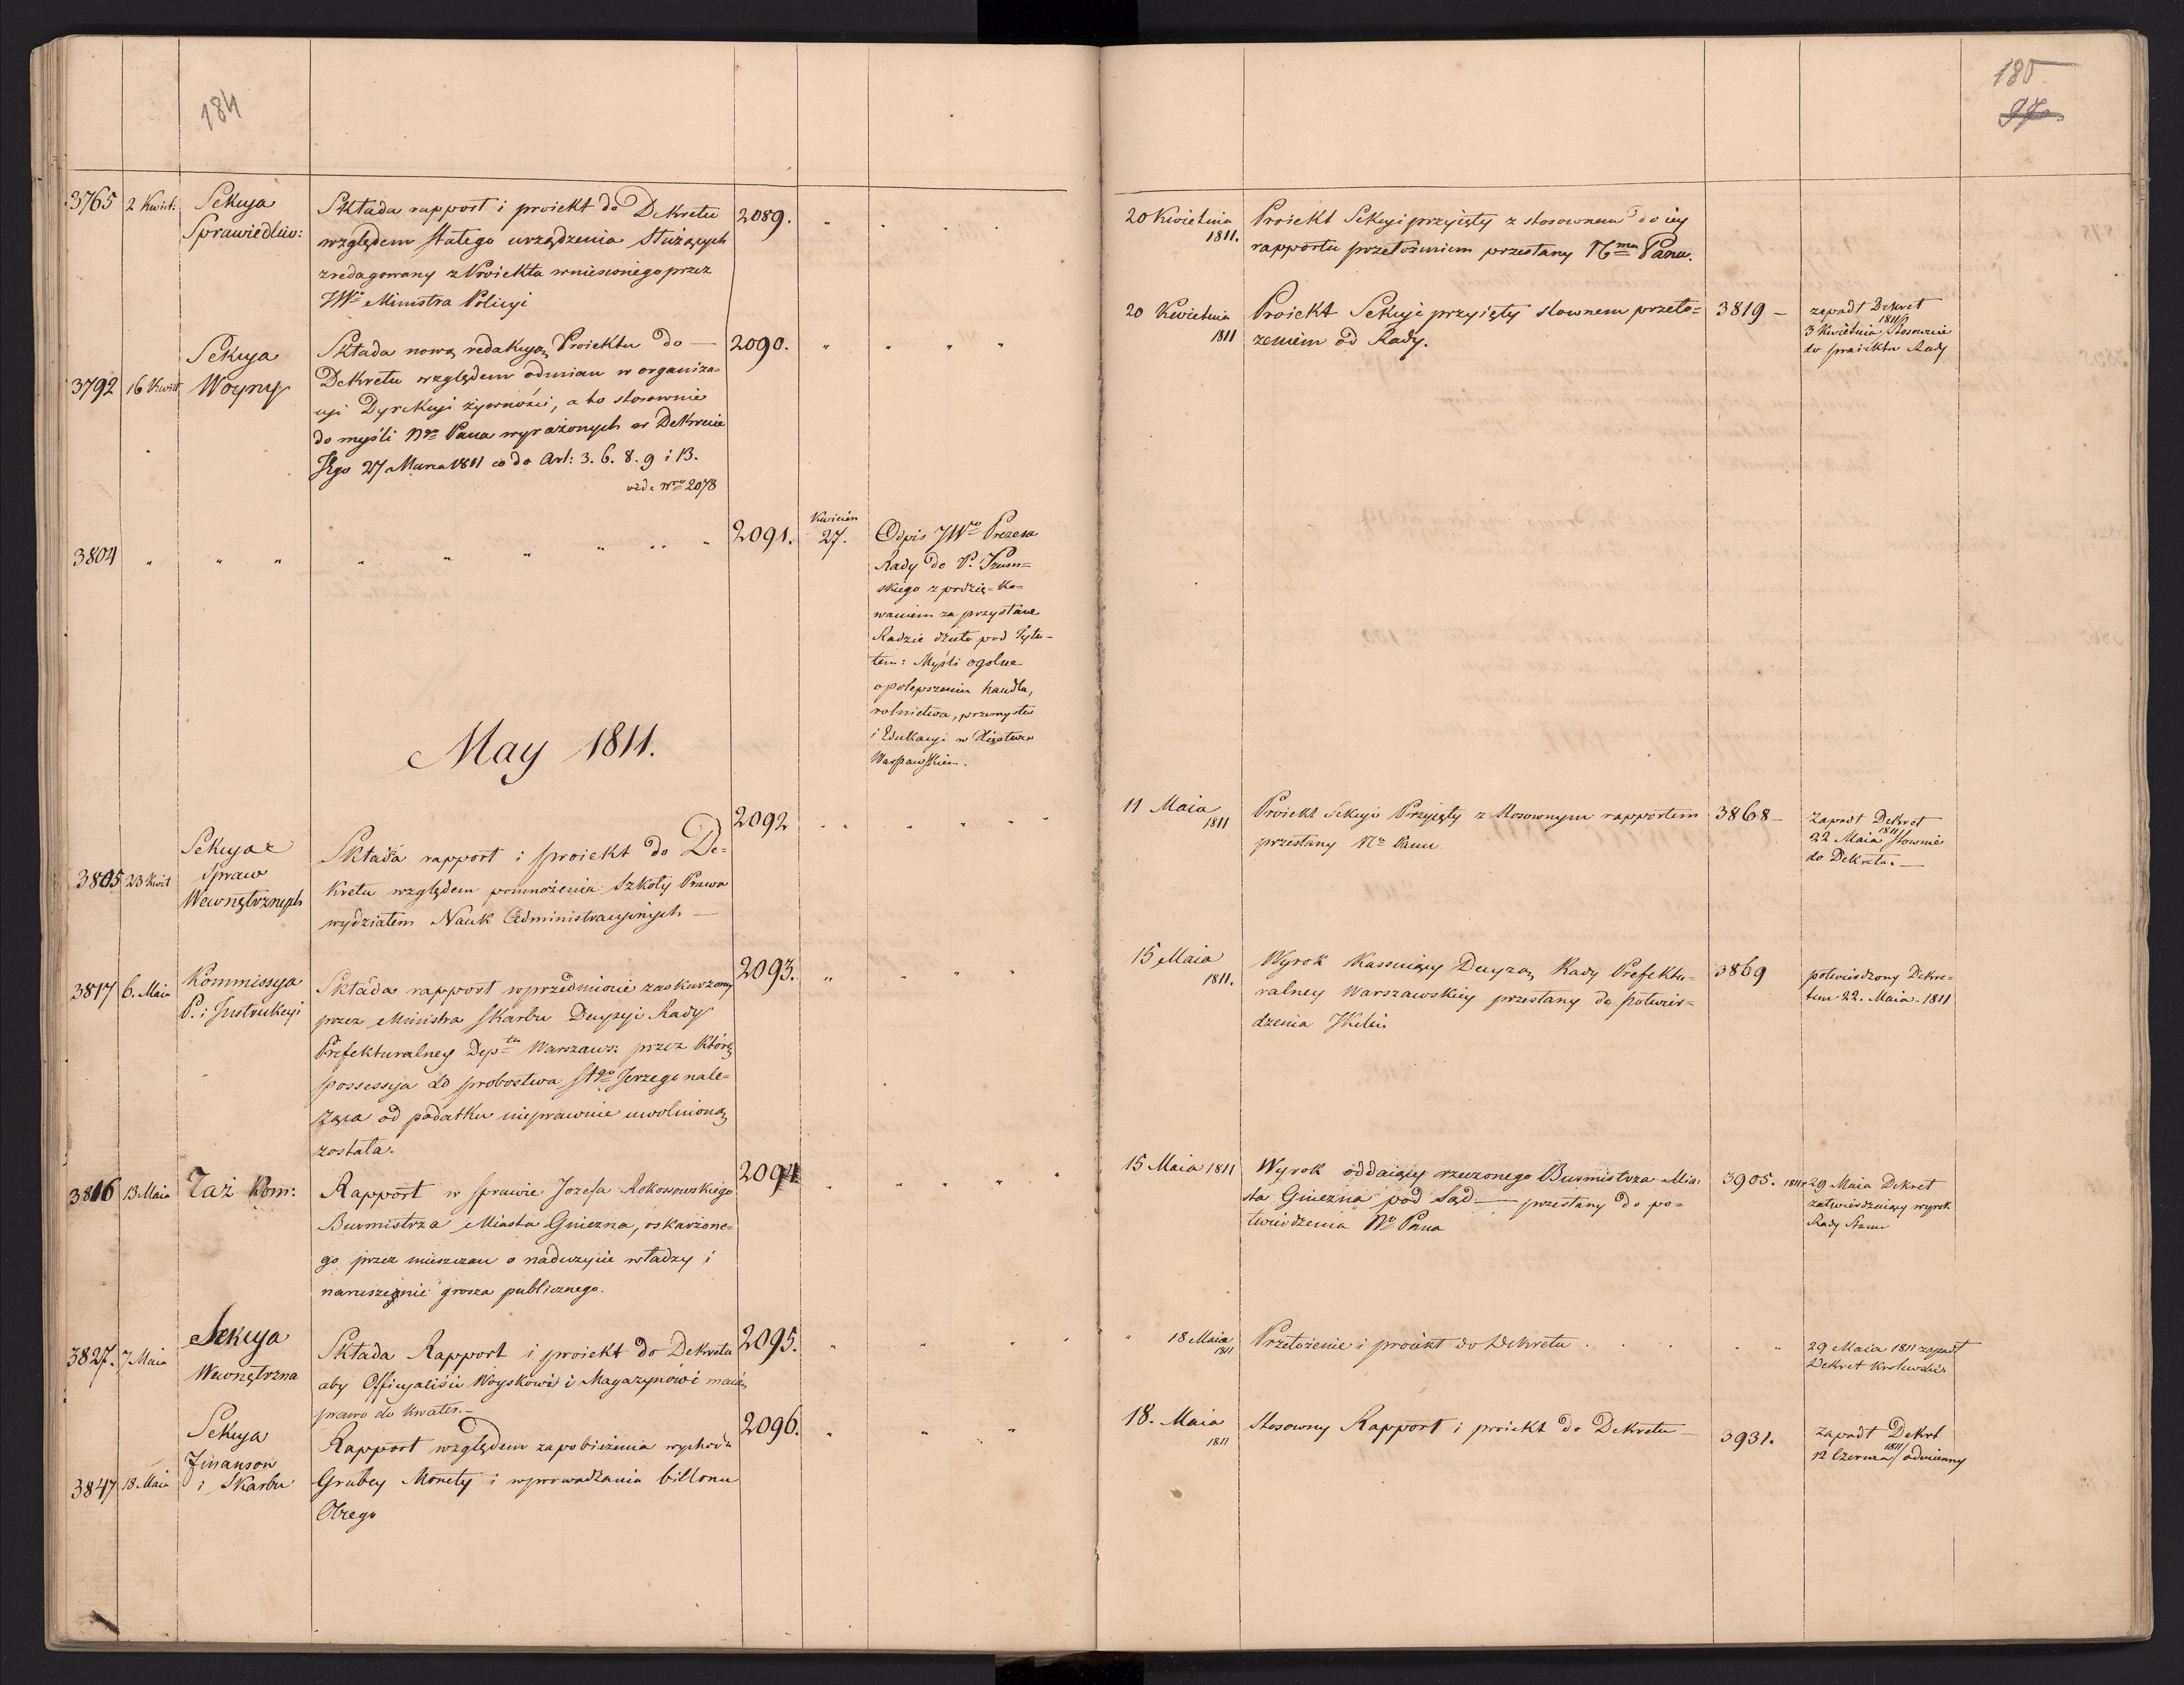 184
3765 2 Kwiet: Sekcya Składa rapport i proiekt do Dekretu 2089.
Sprawiedliw: względem stałego urządzenia służących
zredagowany z Proiektu wniesionego przez
JWo Ministra Policyi
Sekcya Składa nową redakcyą Proiektu do — 2090.
3792 16 Kwiet Woyny Dekretu względem odmian w organiza=
cyi Dyrekcyi żywności, a to stosownie
do myśli Ngo Pana wyrażonych w Dekrecie
Jego 27 Marca 1811 co do Art: 3. 6. 8. 9 i 13.
vide Nro 2078
3804 2091. Kwiecień
27. Odpis JWo Prezesa
Rady do P.
skiego z podzię=ko=
waniem za przysłane
Radzie dzieło pod Tytu=
łem: Myśli ogólne
o polepszeniu handlu,
rolnictwa, przemysłu
i Edukacyi w Xięstwie
Warszawskiem.
May 1811.
2092
Sekcya Składa rapport i proiekt do De=
3805 23 Kwit Spraw kretu względem pomnożenia Szkoły Prawa
Wewnętrznych wydziałem Nauk Administracyinych —
3817 6. Maia Kommissya Składa rapport w przedmiocie zaskarżoney 2093.
P. i Instrukcyi przez Ministra Skarbu Decyzyi Rady
Prefekturalney Depttu Warszaws: przez którą
possessya do probostwa Stgo Jerzego nale=
żąca od podatku nieprawnie uwolnioną
została.
3816 13 Maia Taż Kom: Rapport w sprawie Jozefa Rokossowskiego 2094
Burmistrza Miasta Gniezna, oskarżone=
go przez mieszczan o nadużycie władzy i
naruszenie grosza publicznego.
3827. 7 Maia Sekcya Składa Rapport i proiekt do Dekretu 2095.
Wewnętrzna aby Officyaliści Woyskowi i Magazynowi maią
prawo do kwater.—
Sekcya Rapport względem zapobieżenia wychodu 2096.
Finansow
3847 18 Maia i Skarbu Grubey Monety i wprowadzania billonu
Obcego
185
97
20 Kwietnia Proiekt Sekcyi przyięty z stosownem do iey
1811. rapportu przełożeniem przesłany Nmu Panu.
20 Kwietnia Proiekt Sekcyi przyięty stownem przeło= 3819 — zapadł Dekret
1811 żeniem od Rady. 3 Kwietnia 1811 stosownie
do proiektu Rady
11 Maia Proiekt Sekcyi Przyięty z stosownym rapportem 3868 — zapadł Dekret
1811 przesłany No Panu 22 Maia 1811 stownie
do Dekretu. —
15 Maia Wyrok Kassuiący Decyzą Rady Prefektu= 3869 potwierdzony Dekre=
1811. ralney Warszawskiey przesłany do potwier= tem 22. Maia 1811
dzenia
15 Maia 1811 Wyrok oddaiący rzeczonego Burmistrza Mia= 3905. 1811 29 Maia Dekret
sta Gniezna pod Sąd — przesłany do po= zatwierdzaiący wyrok
twierdzenia No Pana Rady Stanu
18 Maia Przełożenie i proiekt do Dekretu 29 Maia 1811 zapadł
1811 Dekret Krolewski
18. Maia Stosowny Rapport i proiekt do Dekretu — 3931. zapadł Dekret
1811 12 Czerwca 1811 odmienny